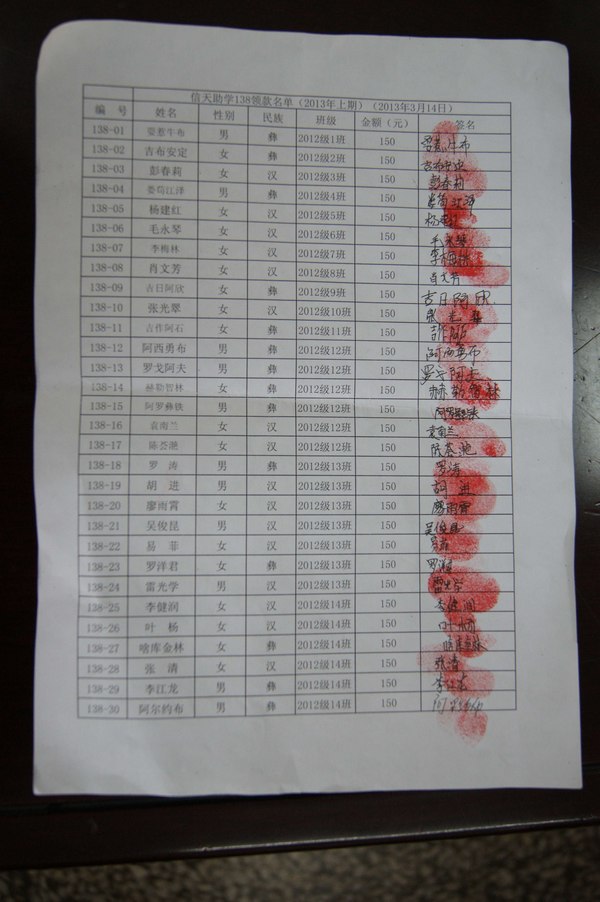 信天助学138领款名单（2013年上期）（2013年3月14日）
编 号 姓名 性别 民族 班级 金额（元） 签名
138-01 娄惹牛布 男 彝 2012级1班 150
138-02 吉布安定 女 彝 2012级2班 150 吉布安定
138-03 彭春莉 女 汉 2012级3班 150 彭春莉
138-04 娄苟江泽 男 彝 2012级4班 150
138-05 杨建红 女 汉 2012级5班 150
138-06 毛永琴 女 彝 2012级6班 150 毛永琴
138-07 李梅林 女 汉 2012级7班 150 李梅林
138-08 肖文芳 女 汉 2012级8班 150 肖文芳
138-09 吉日阿欣 女 彝 2012级9班 150 吉日阿欣
138-10 张光翠 女 汉 2012级10班 150
138-11 吉作阿石 女 彝 2012级11班 150
138-12 阿西勇布 男 彝 2012级12班 150 阿西勇布
138-13 罗戈阿夫 男 彝 2012级12班 150 罗戈阿夫
138-14 赫勒智林 女 彝 2012级12班 150 赫勒智林
138-15 阿罗彝铁 男 彝 2012级12班 150
138-16 袁南兰 女 汉 2012级12班 150 袁南兰
138-17 陈荟滟 女 汉 2012级12班 150 陈荟滟
138-18 罗 涛 男 彝 2012级13班 150 罗涛
138-19 胡 进 男 汉 2012级13班 150 胡 进
138-20 廖雨霄 女 汉 2012级13班 150 廖雨霄
138-21 吴俊昆 男 汉 2012级13班 150 吴俊昆
138-22 易 菲 女 汉 2012级13班 150 易菲
138-23 罗洋君 女 彝 2012级13班 150
138-24 雷光学 男 汉 2012级13班 150 雷光学
138-25 李健润 女 汉 2012级14班 150 李健润
138-26 叶 杨 女 汉 2012级14班 150 叶杨
138-27 啥库金林 女 彝 2012级14班 150
138-28 张 清 女 汉 2012级14班 150 张清
138-29 李江龙 男 彝 2012级14班 150 李江龙
138-30 阿尔约布 男 彝 2012级14班 150